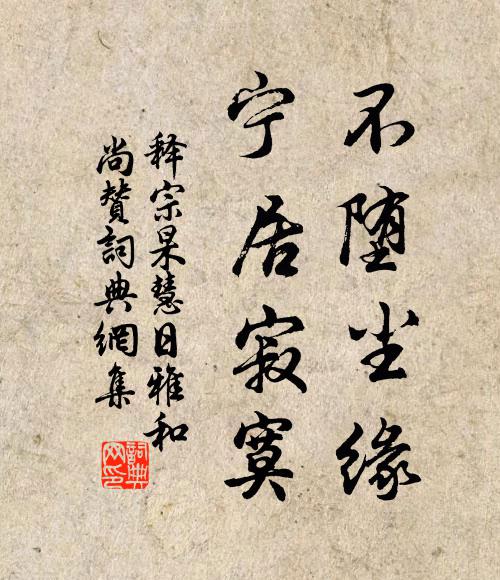 不堕尘缘
宁居寂寞
释宗杲慧日雅和
尚赞詞典網集
詞典
网印